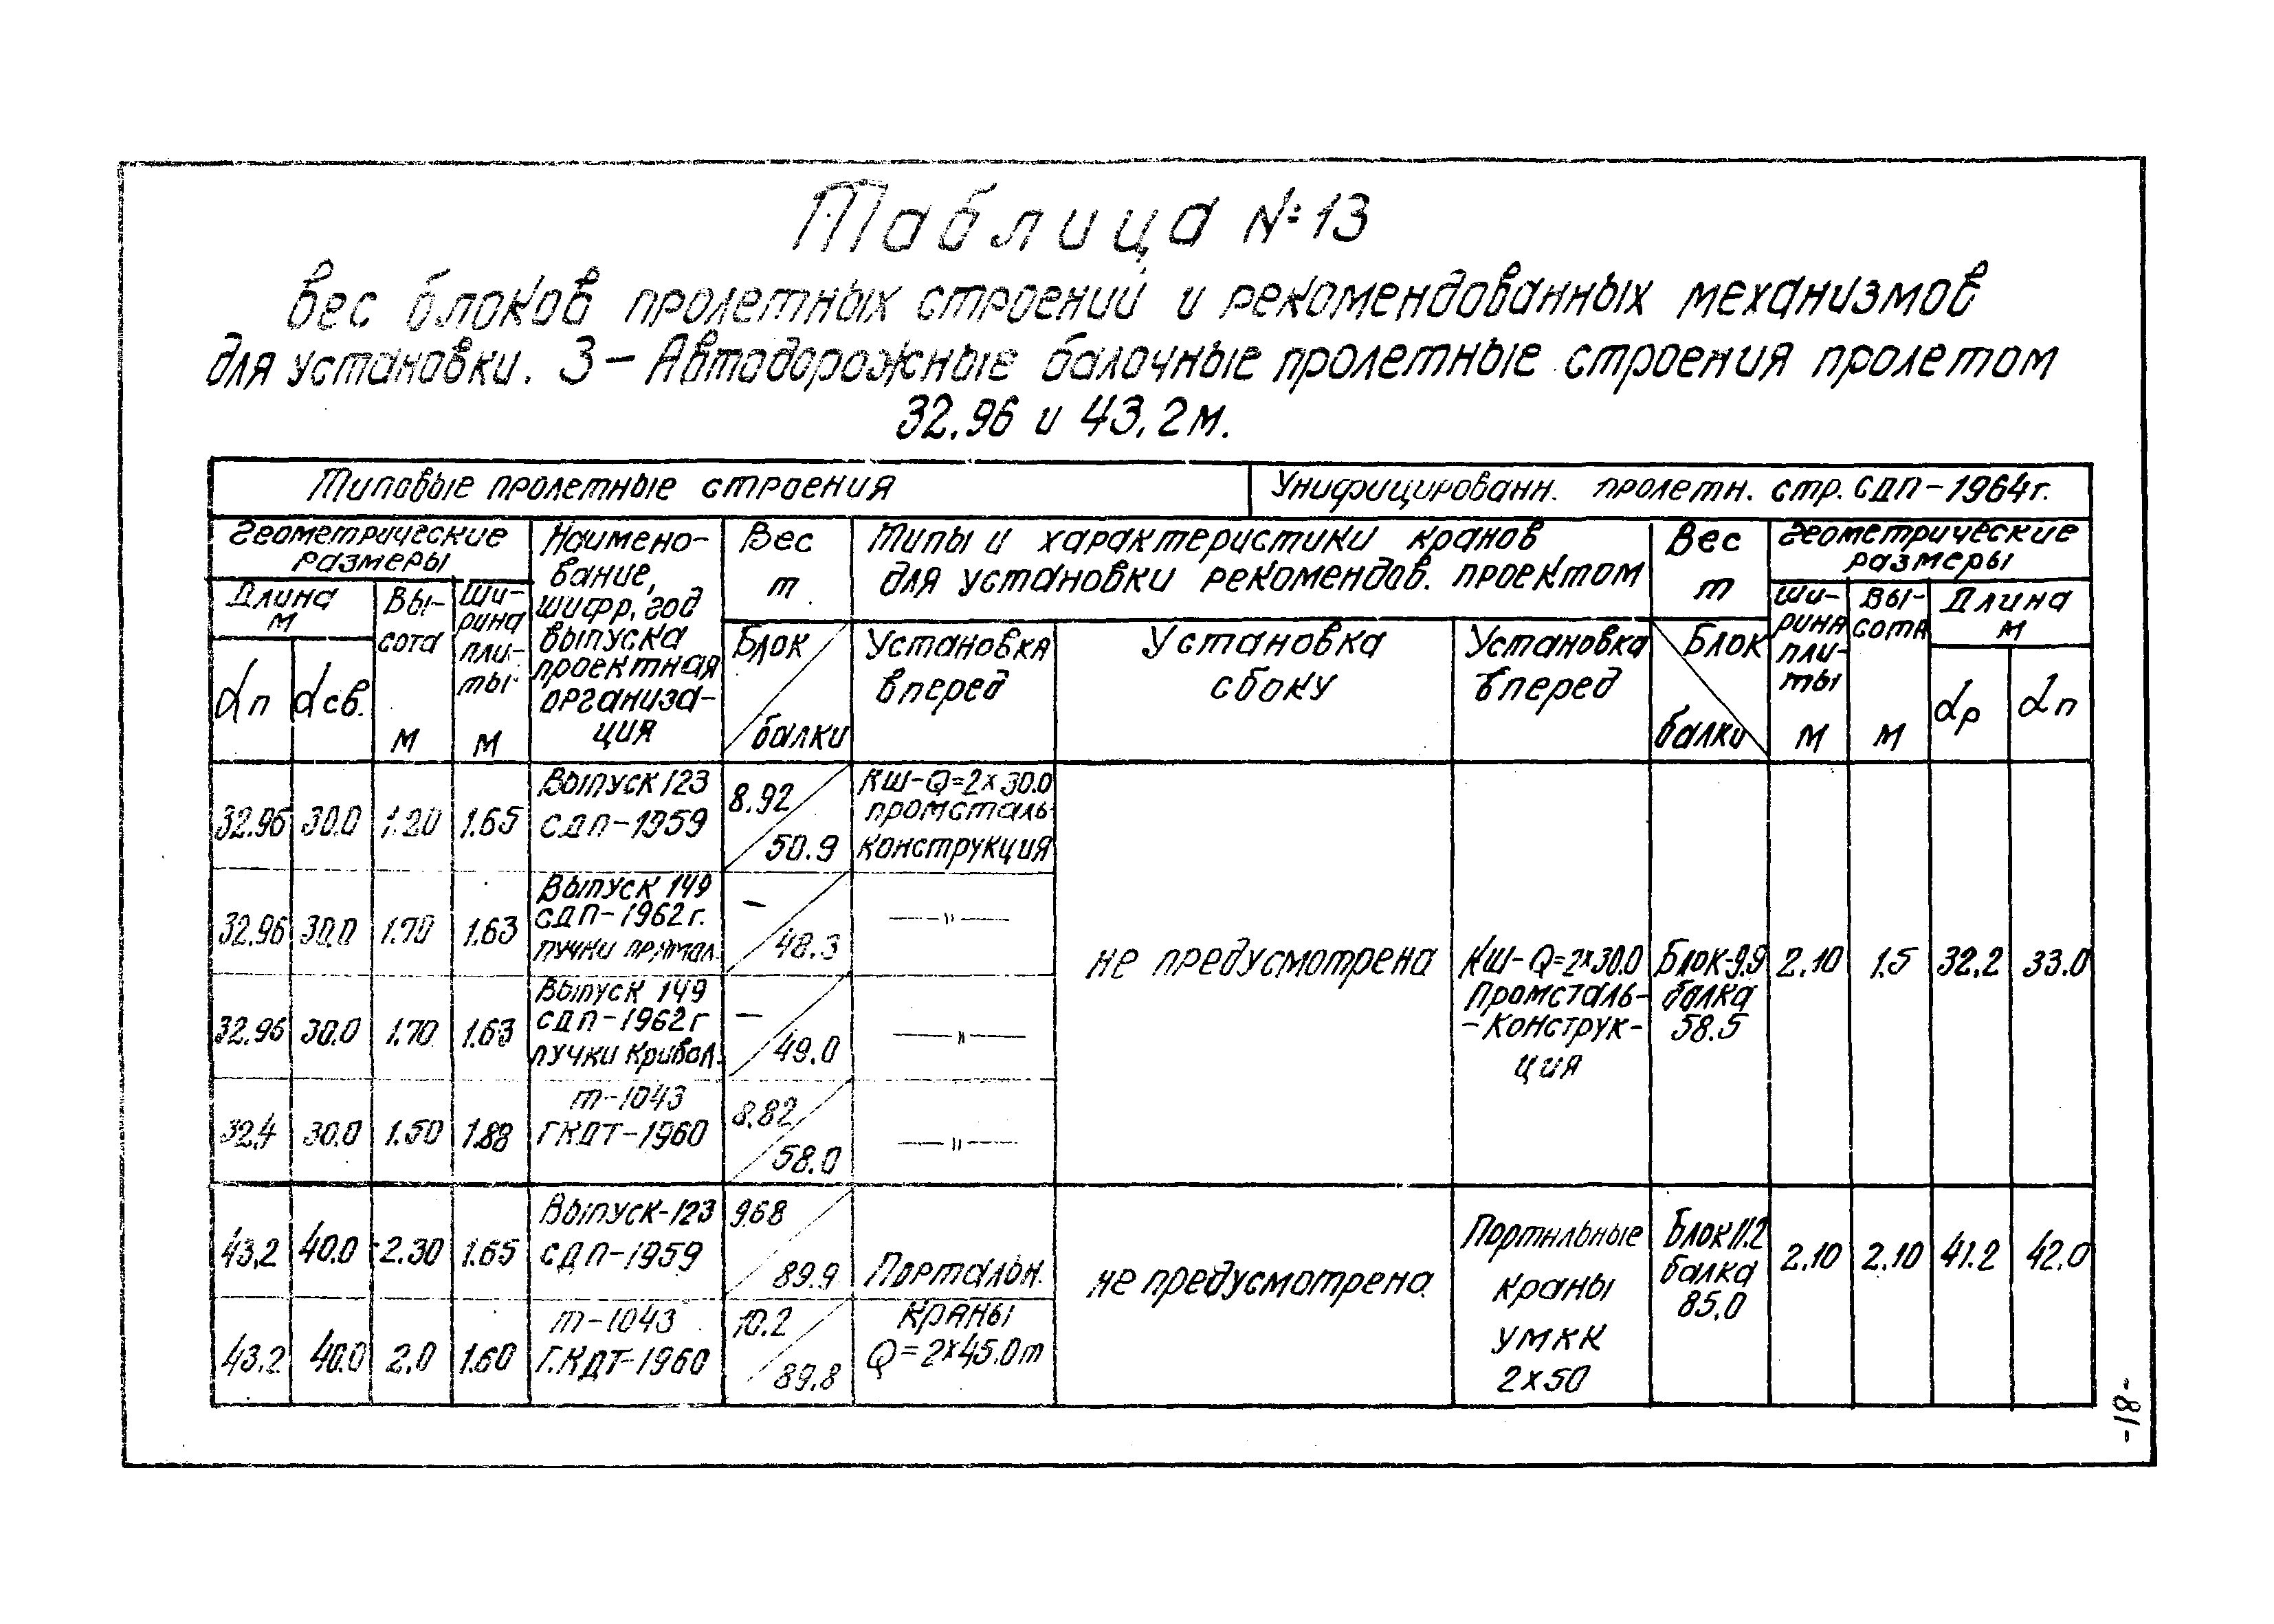 Таблица №13
Вес блоков пролетных строений и рекомендованных механизмов
для установки. 3 – Автодорожные балочные пролетные строения пролетом
32.96 и 43.2м.
Типовые пролетные строения
Унифицированн. пролетн. стр. СДП-1964г.
Геометрические
размеры
Наимено-
вание,
шифр, год
выпуска
проектная
организа-
ция
Вес
т
Типы и характеристики кранов
для установки рекомендов. проектом
Вес
т
Геометрические
размеры
Длина
м
Вы-
сота
м
Ши-
рина
пли-
ты
м
Блок
балки
Установка
вперед
Установка
сбоку
Установка
вперед
Блок
балки
Ши-
рина
пли-
ты
м
Вы-
сота
м
Длина
м
αп
αсв.
αр
αп
32.96 30.0 1.20 1.65
Выпуск 123
СДП-1959
8.92
50.9
КШ-Q=2х30.0
промсталь-
конструкция
32.96 30.0 1.70 1.63
Выпуск 149
СДП-1962г.
пучки прямол.
–
48.3
—"—
не предусмотрена
КШ-Q=2х30.0
Промсталь-
-конструк-
ция
Блок-9.9
балка
58.5
2.10 1.5 32.2 33.0
32.96 30.0 1.70 1.63
Выпуск 149
СДП-1962г
пучки Кривол.
–
49.0
—"—
32.4 30.0 1.50 1.88
т-1043
ГКДТ-1960
8.82
58.0
—"—
43.2 40.0 2.30 1.65
Выпуск-123
СДП-1959
9.68
89.9
Портальн.
краны
Q=2х45.0т
не предусмотрена
Портальные
краны
УМКК
2х50
Блок 11.2
балка
85.0
2.10 2.10 41.2 42.0
43.2 40.0 2.0 1.60
т-1043
Г.КДТ-1960
10.2
89.8
-18-